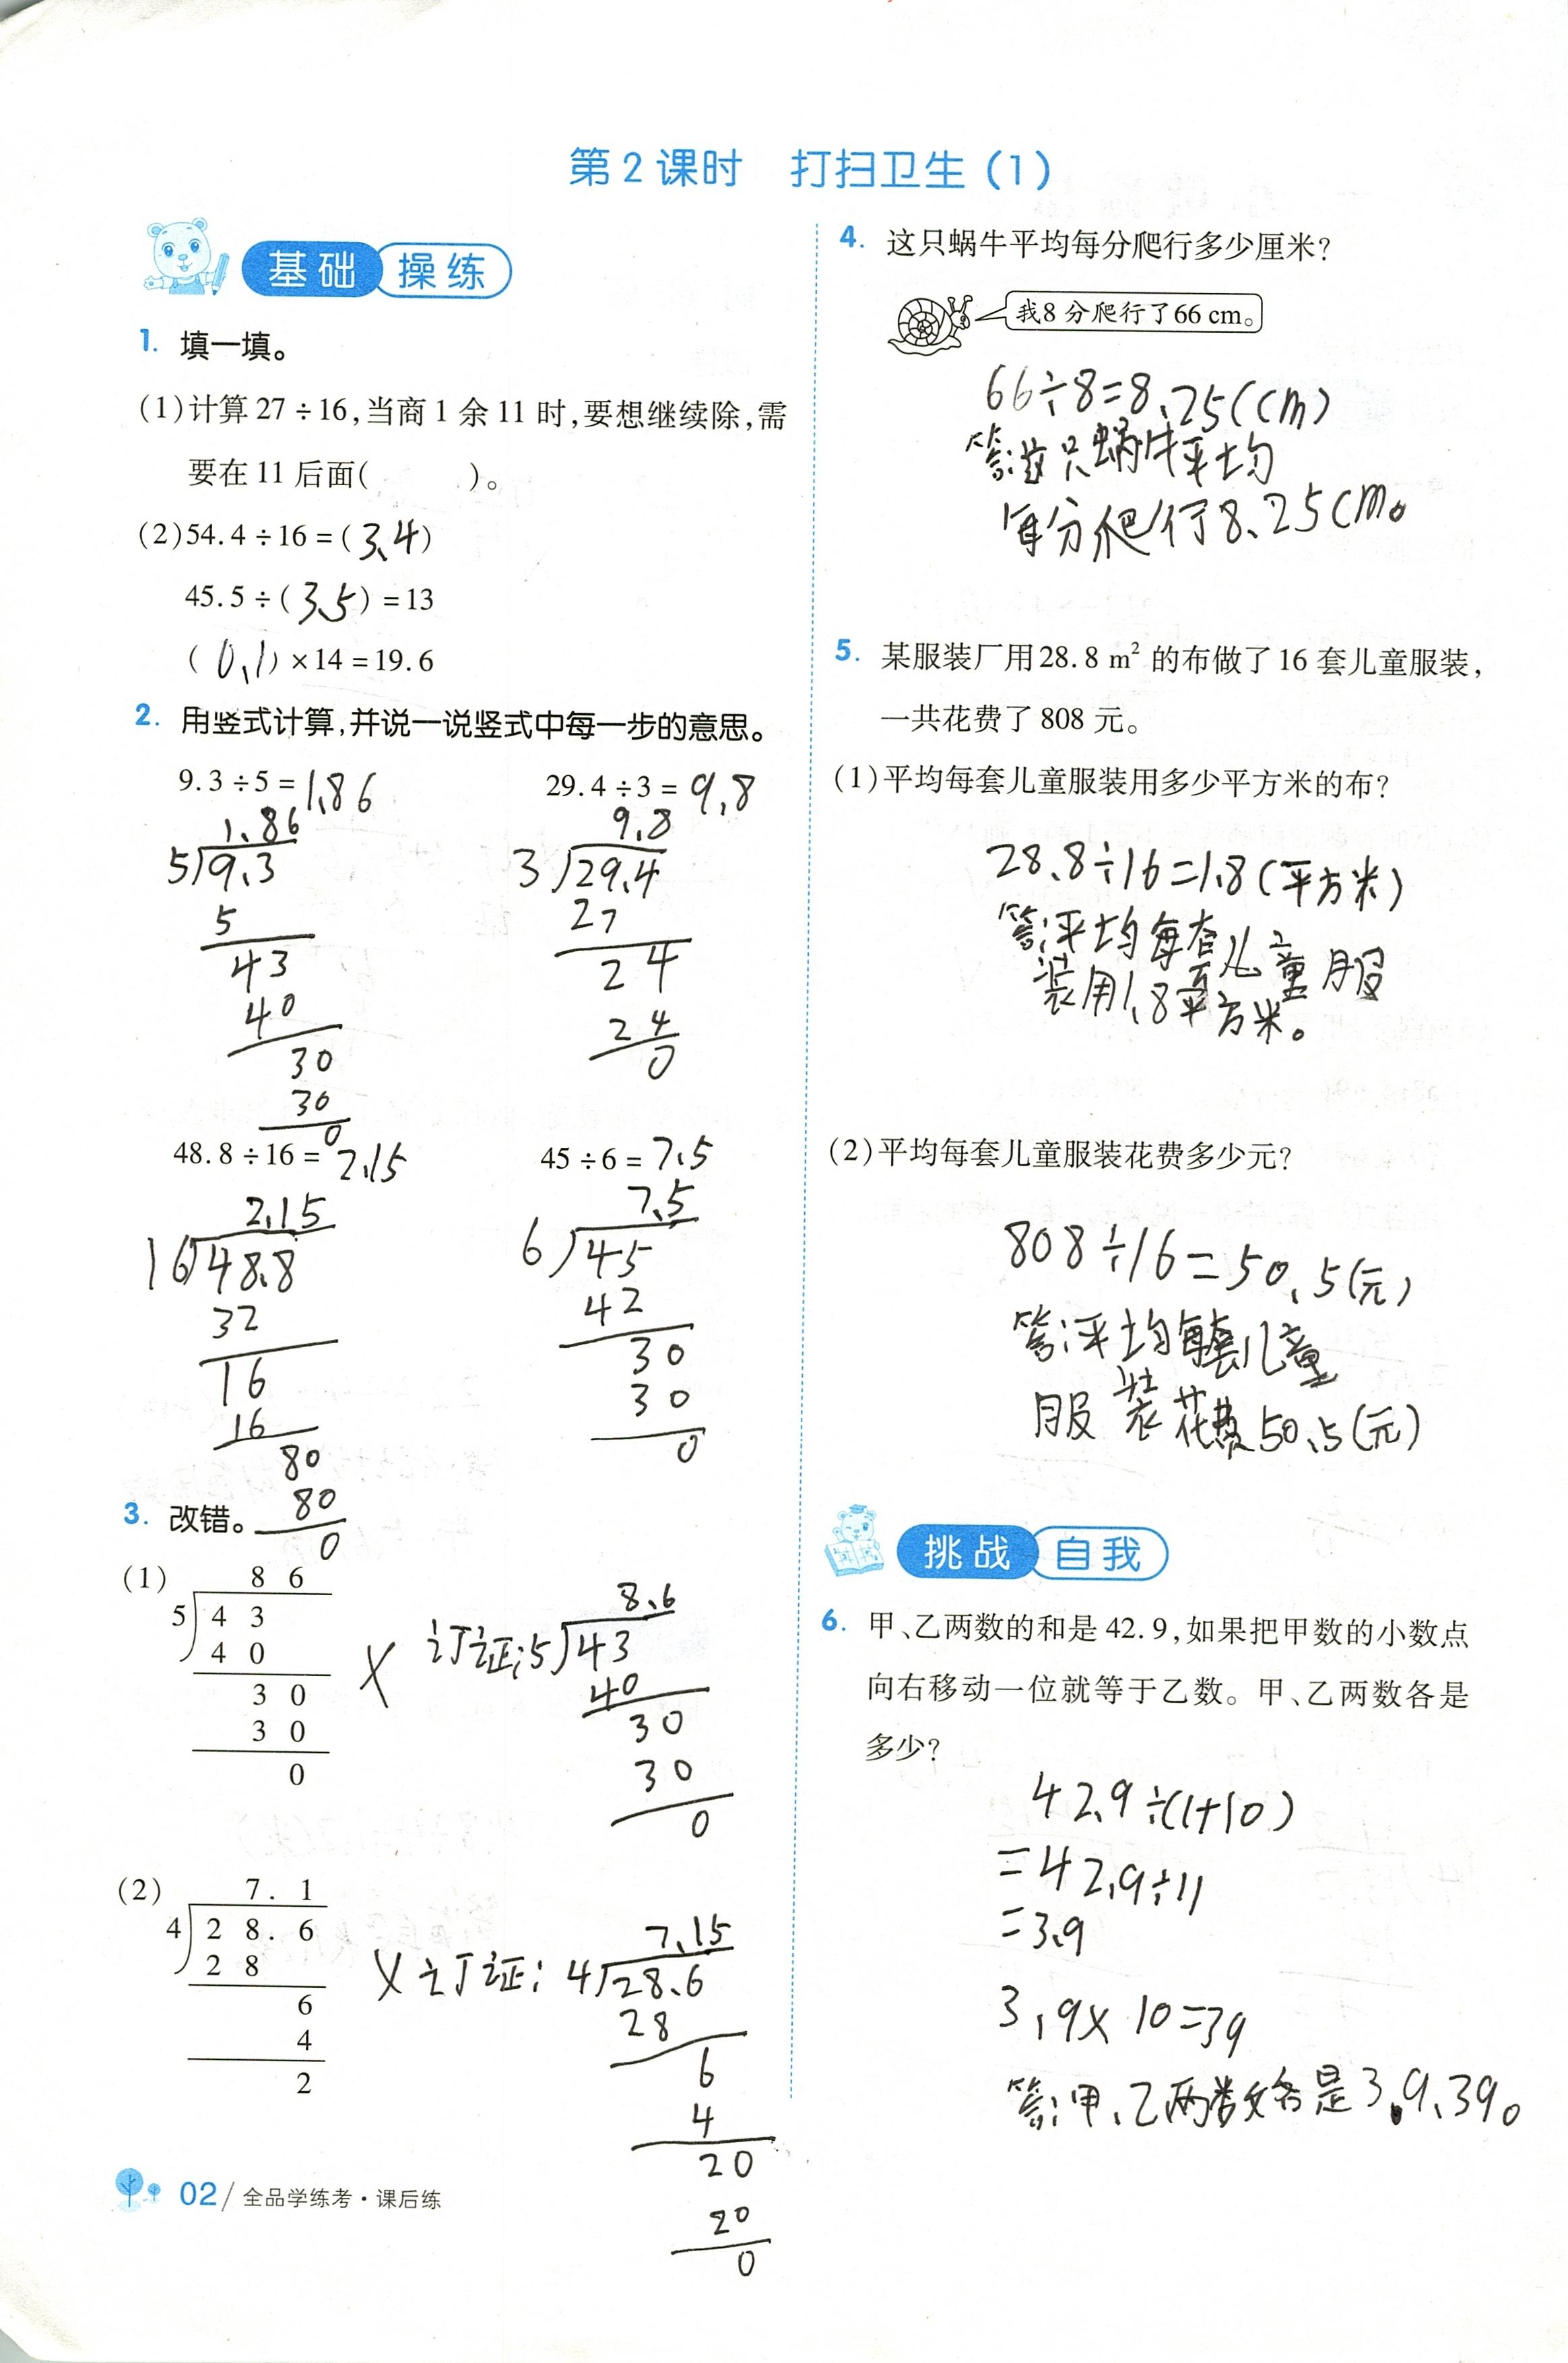 第2课时 打扫卫生(1)
基础 操练
1. 填一填。
(1)计算27÷16,当商1余11时,要想继续除,需
要在11后面(  )。
(2)54.4÷16=(3.4)
45.5÷(3.5)=13
(0.1)×14=19.6
2. 用竖式计算,并说一说竖式中每一步的意思。
9.3÷5=1.86 29.4÷3=9.8
1.86
5)9.3
5
43
40
30
30
0
9.8
3)29.4
27
24
24
0
48.8÷16=2.15 45÷6=7.5
2.15
16)48.8
32
16
16
80
80
0
7.5
6)45
42
30
30
0
3. 改错。
(1)
8 6
5)4 3
4 0
3 0
3 0
0
× 订证:
8.6
5)43
40
30
30
0
(2)
7.1
4)28.6
28
6
4
2
× 订证:
7.15
4)28.6
28
6
4
20
20
0
02/全品学练考·课后练
4. 这只蜗牛平均每分爬行多少厘米?
我8分爬行了66 cm。
66÷8=8.25(cm)
答:这只蜗牛平均
每分爬行8.25cm。
5. 某服装厂用28.8 m²的布做了16套儿童服装,
一共花费了808元。
(1)平均每套儿童服装用多少平方米的布?
28.8÷16=1.8(平方米)
答:平均每套儿童服
装用1.8平方米。
(2)平均每套儿童服装花费多少元?
808÷16=50.5(元)
答:平均每套儿童
服装花费50.5(元)
挑战 自我
6. 甲、乙两数的和是42.9,如果把甲数的小数点
向右移动一位就等于乙数。甲、乙两数各是
多少?
42.9÷(1+10)
=42.9÷11
=3.9
3.9×10=39
答:甲、乙两数各是3.9、39。